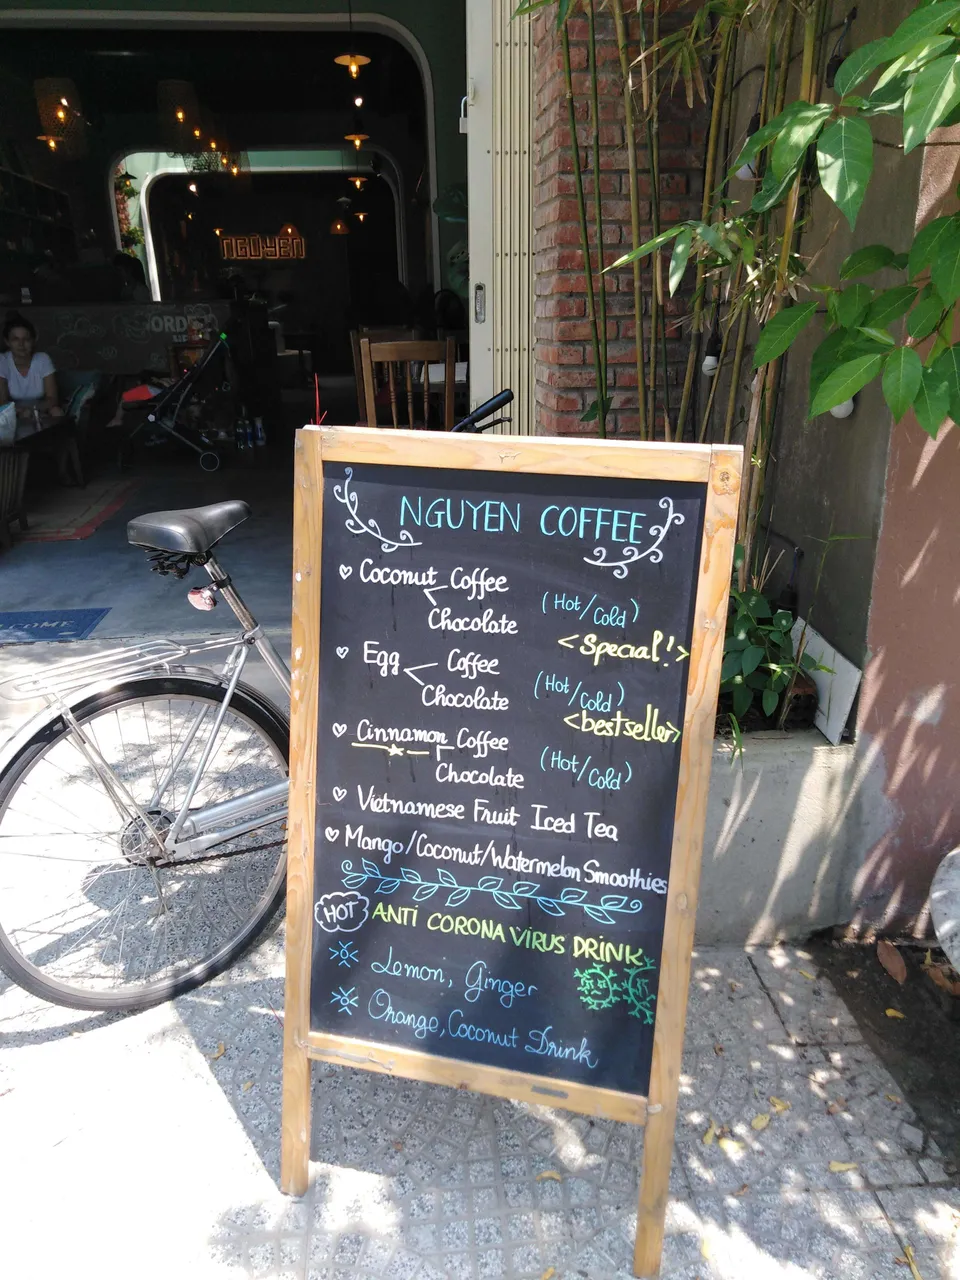 NGUYEN
ORDE
COME
NGUYEN COFFEE
Coconut Coffee
Chocolate
(Hot/Cold)
<Special!>
Egg Coffee
Chocolate
(Hot/Cold)
<bestseller>
Cinnamon Coffee
Chocolate
(Hot/Cold)
Vietnamese Fruit Iced Tea
Mango/Coconut/Watermelon Smoothies
HOT ANTI CORONA VIRUS DRINK
Lemon, Ginger
Orange, Coconut Drink